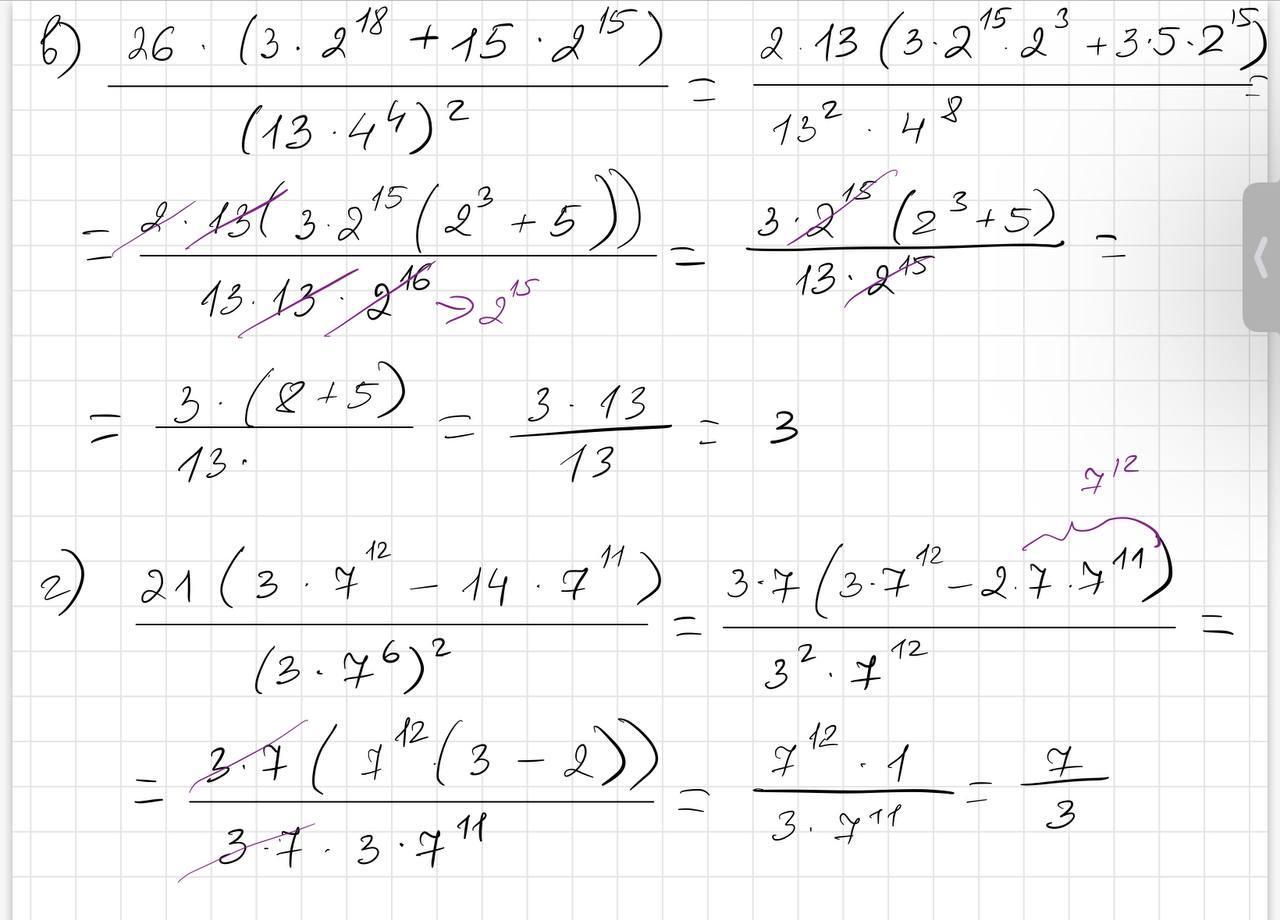 в) 26 · (3 · 2^18 + 15 · 2^15) / (13 · 4^4)^2 = 2 · 13 (3 · 2^15 · 2^3 + 3 · 5 · 2^15) / 13^2 · 4^8 =
= 2 · 13 (3 · 2^15 (2^3 + 5)) / 13 · 13 · 2^16 → 2^15 = 3 · 2^15 (2^3 + 5) / 13 · 2^15 =
= 3 · (8 + 5) / 13 · = 3 · 13 / 13 = 3
7^12
г) 21 (3 · 7^12 − 14 · 7^11) / (3 · 7^6)^2 = 3 · 7 (3 · 7^12 − 2 · 7 · 7^11) / 3^2 · 7^12 =
= 3 · 7 (7^12 (3 − 2)) / 3 · 7 · 3 · 7^11 = 7^12 · 1 / 3 · 7^11 = 7 / 3